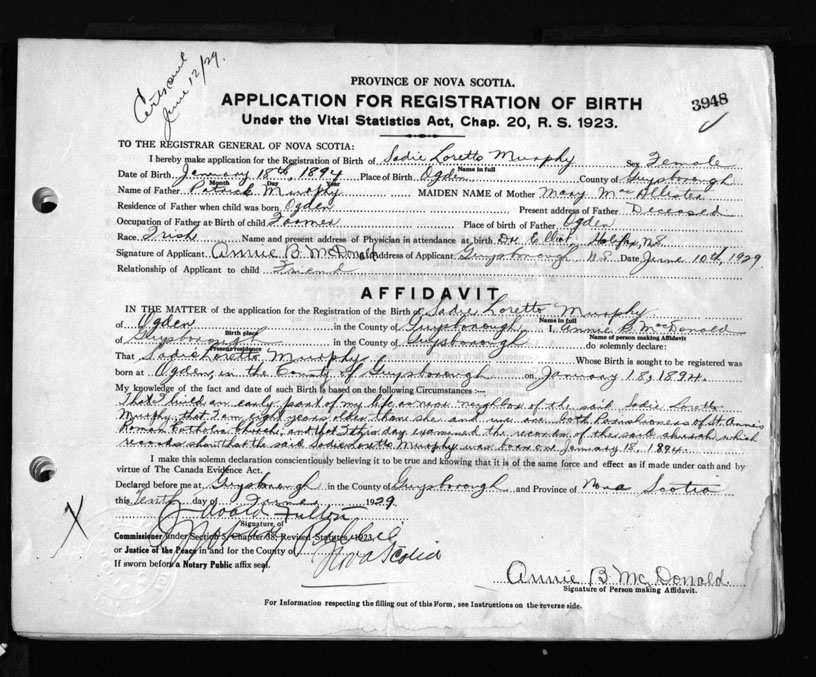 Cert sent
June 12/29.
3948
PROVINCE OF NOVA SCOTIA.
APPLICATION FOR REGISTRATION OF BIRTH
Under the Vital Statistics Act, Chap. 20, R. S. 1923.
TO THE REGISTRAR GENERAL OF NOVA SCOTIA:
I hereby make application for the Registration of Birth of Sadie Loretto Murphy Sex Female
Name in full
Date of Birth January 18th, 1894 Place of Birth Ogden County of Guysborough
Month Day Year
Name of Father Patrick Murphy MAIDEN NAME of Mother Mary McAllister
Residence of Father when child was born Ogden Present address of Father Deceased
Occupation of Father at Birth of child Farmer Place of birth of Father Ogden
Race Irish Name and present address of Physician in attendance at birth Dr. Elliot, Halifax, N.S.
Signature of Applicant Annie B. McDonald Address of Applicant Guysborough N.S. Date June 10th, 1929
Relationship of Applicant to child Friend
AFFIDAVIT
IN THE MATTER of the application for the Registration of the Birth of Sadie Loretto Murphy
Name in full
of Ogden in the County of Guysborough I, Annie B. McDonald
Birth place Name of person making Affidavit
of Guysborough in the County of Guysborough do solemnly declare:
Present residence
That Sadie Loretto Murphy Whose Birth is sought to be registered was
born at Ogden, in the County of Guysborough on January 18, 1894.
My knowledge of the fact and date of such Birth is based on the following Circumstances :—
That I early part of my life a near neighbor of the said Sadie Loretto
Murphy, that I am eight years older than she and we are both Parishioners of St. Anne's
Roman Catholic Church, and that I this day examined the records of the said church which
records show that the said Sadie Loretto Murphy was born on January 18, 1894.
I make this solemn declaration conscientiously believing it to be true and knowing that it is of the same force and effect as if made under oath and by
virtue of The Canada Evidence Act.
Declared before me at Guysborough in the County of Guysborough and Province of Nova Scotia
this Tenth day of June 1929
Fulton
Signature of
Commissioner under Section 5, Chapter 38, Revised Statutes, 1923.
or Justice of the Peace in and for the County of
Nova Scotia
If sworn before a Notary Public affix seal.
X
Annie B. McDonald
Signature of Person making Affidavit.
For Information respecting the filling out of this Form, see Instructions on the reverse side.